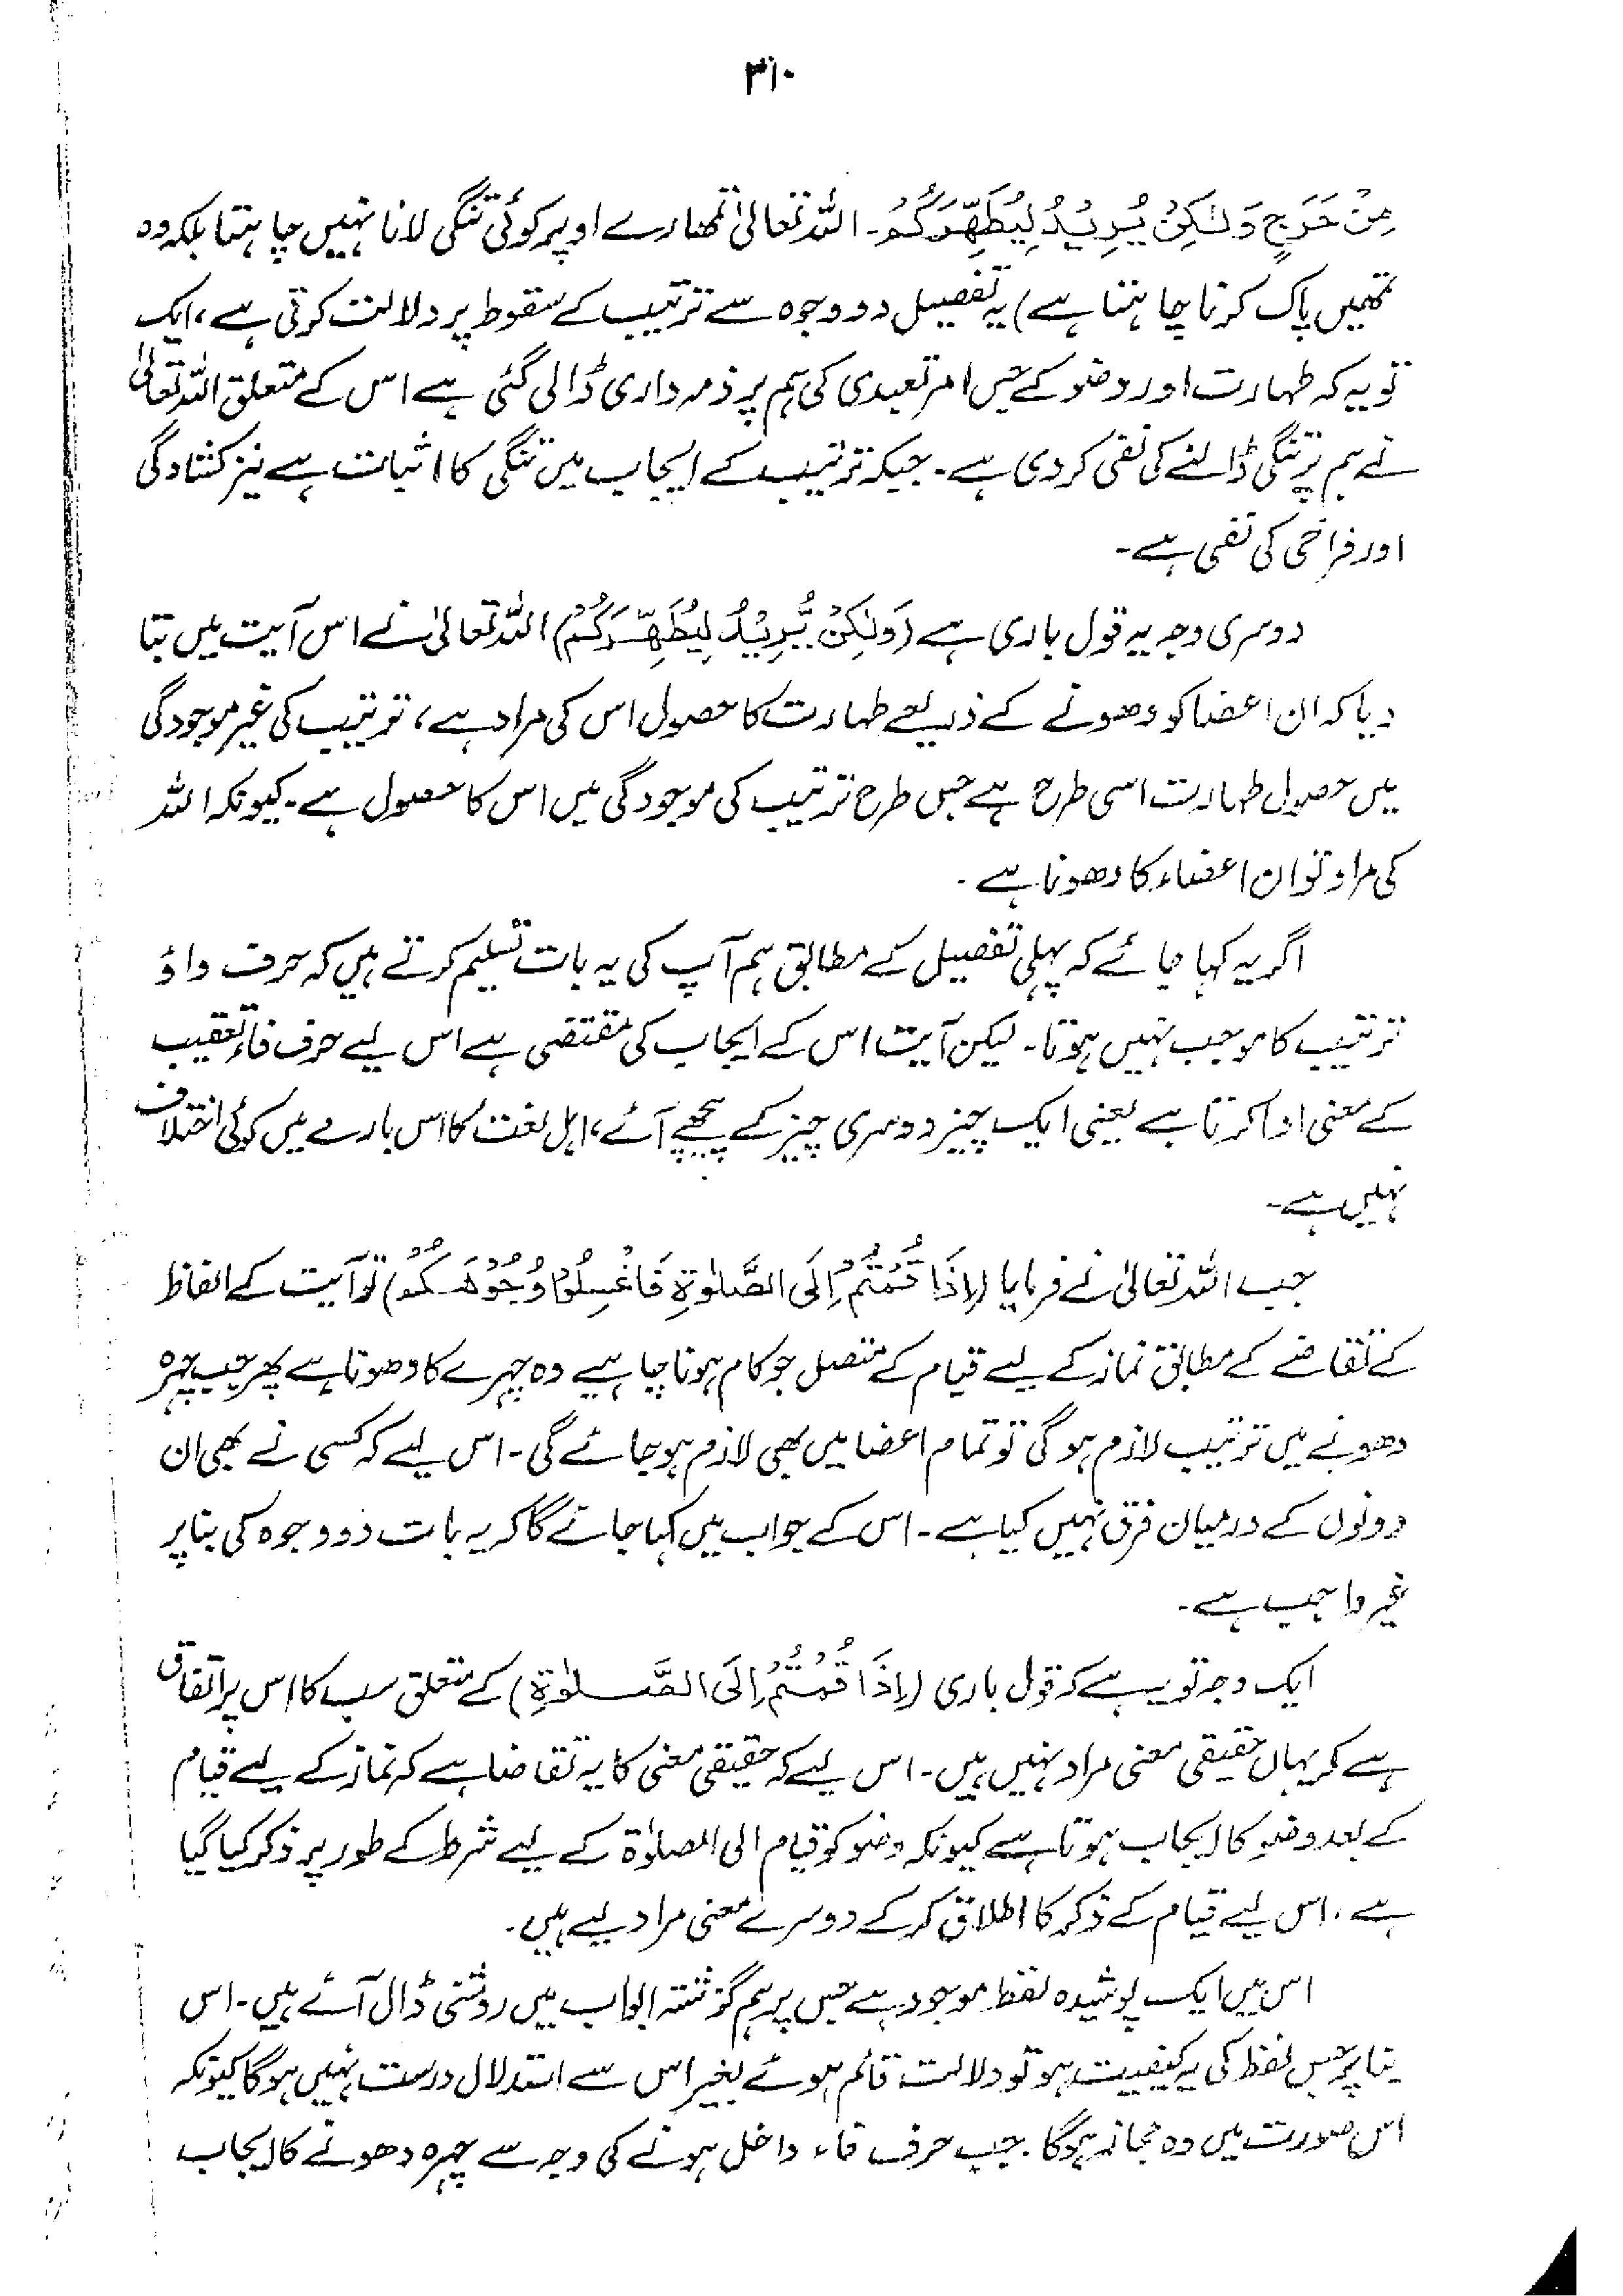 ۳۱۰
مِنْ حَرَجٍ وَلٰكِنْ يُرِيْدُ لِيُطَهِّرَكُمْ۔ اللہ تعالیٰ تمھارے اوپر کوئی تنگی لانا نہیں چاہتا بلکہ وہ
تمھیں پاک کرنا چاہتا ہے) یہ تفصیل دو وجوہ سے ترتیب کے سقوط پر دلالت کرتی ہے، ایک
تو یہ کہ طہارت اور وضو کے جس امر تعبدی کی ہم پر ذمہ داری ڈالی گئی ہے اس کے متعلق اللہ تعالیٰ
نے ہم پر تنگی ڈالنے کی نفی کر دی ہے۔ جبکہ ترتیب کے ایجاب میں تنگی کا اثبات ہے نیز کشادگی
اور فراخی کی نفی ہے۔
دوسری وجہ یہ قول باری ہے (وَلٰكِنْ يُّرِيْدُ لِيُطَهِّرَكُمْ) اللہ تعالیٰ نے اس آیت میں بتا
دیا کہ ان اعضا کو دھونے کے ذریعے طہارت کا حصول اس کی مراد ہے، ترتیب کی غیر موجودگی
میں حصول طہارت اسی طرح ہے جس طرح ترتیب کی موجودگی میں اس کا حصول ہے۔ کیونکہ اللہ
کی مراد تو ان اعضاء کا دھونا ہے۔
اگر یہ کہا جائے کہ پہلی تفصیل کے مطابق ہم آپ کی یہ بات تسلیم کرتے ہیں کہ حرف واؤ
ترتیب کا موجب نہیں ہوتا۔ لیکن آیت اس کے ایجاب کی مقتضی ہے اس لیے حرف فاء تعقیب
کے معنی ادا کرتا ہے یعنی ایک چیز دوسری چیز کے پیچھے آئے، اہل لغت کا اس بارے میں کوئی اختلاف
نہیں ہے۔
جب اللہ تعالیٰ نے فرمایا (اِذَا قُمْتُمْ اِلَى الصَّلٰوةِ فَاغْسِلُوْا وُجُوْهَكُمْ) تو آیت کے الفاظ
کے تقاضے کے مطابق نماز کے لیے قیام کے متصل جو کام ہونا چاہیے وہ چہرے کا دھونا ہے پھر جب چہرہ
دھونے میں ترتیب لازم ہو گی تو تمام اعضا میں بھی لازم ہو جائے گی۔ اس لیے کہ کسی نے بھی ان
دونوں کے درمیان فرق نہیں کیا ہے۔ اس کے جواب میں کہا جائے گا کہ یہ بات دو وجوہ کی بنا پر
غیر واجب ہے۔
ایک وجہ تو یہ ہے کہ قول باری (اِذَا قُمْتُمْ اِلَى الصَّلٰوةِ) کے متعلق سب کا اس پر اتفاق
ہے کہ یہاں حقیقی معنی مراد نہیں ہیں۔ اس لیے کہ حقیقی معنی کا یہ تقاضا ہے کہ نماز کے لیے قیام
کے بعد وضو کا ایجاب ہوتا ہے کیونکہ وضو کو قیام الی الصلوٰۃ کے لیے شرط کے طور پر ذکر کیا گیا
ہے، اس لیے قیام کے ذکر کا اطلاق کر کے دوسرے معنی مراد لیے ہیں۔
اس میں ایک پوشیدہ لفظ موجود ہے جس پر ہم گزشتہ ابواب میں روشنی ڈال آئے ہیں۔ اس
بنا پر جس لفظ کی یہ کیفیت ہو تو دلالت قائم ہوئے بغیر اس سے استدلال درست نہیں ہو گا کیونکہ
اس صورت میں وہ مجاز ہو گا۔ جب حرف فاء داخل ہونے کی وجہ سے چہرہ دھونے کا ایجاب